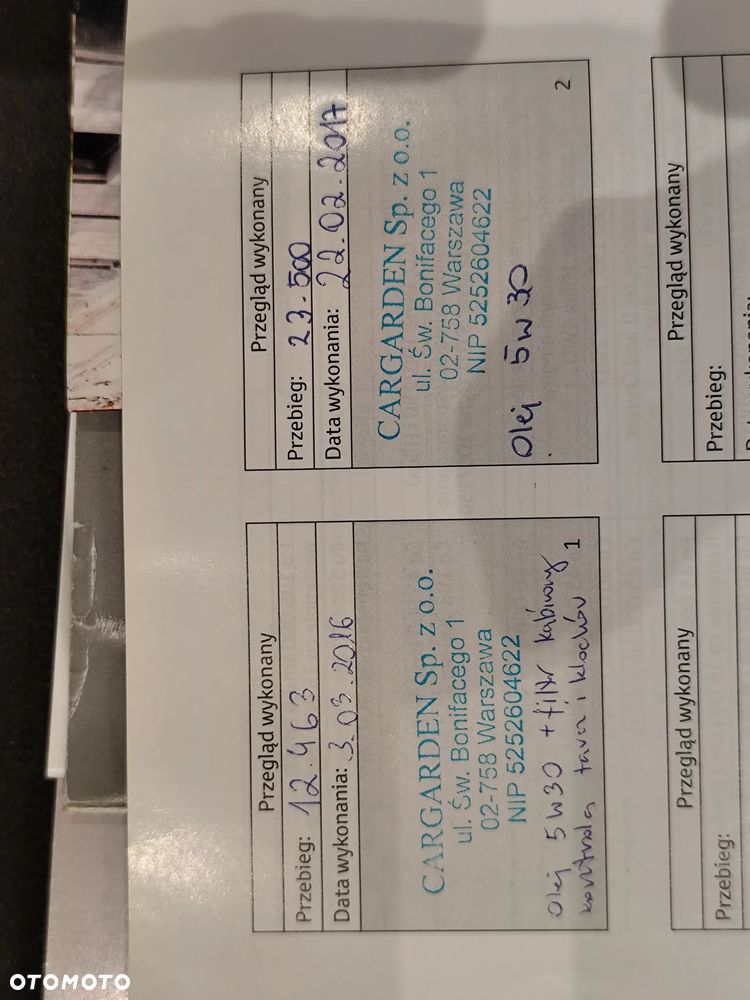 Przegląd wykonany
Przebieg: 12.463
Data wykonania: 3.03.2016
CARGARDEN Sp. z o.o.
ul. Św. Bonifacego 1
02-758 Warszawa
NIP 5252604622
Olej 5W30 + filtr kabinowy
kontrola tarcz i klocków
1
Przegląd wykonany
Przebieg: 23.500
Data wykonania: 22.02.2017
CARGARDEN Sp. z o.o.
ul. Św. Bonifacego 1
02-758 Warszawa
NIP 5252604622
Olej 5W30
2
Przegląd wykonany
Przebieg:
Przegląd wykonany
Przebieg:
OTOMOTO